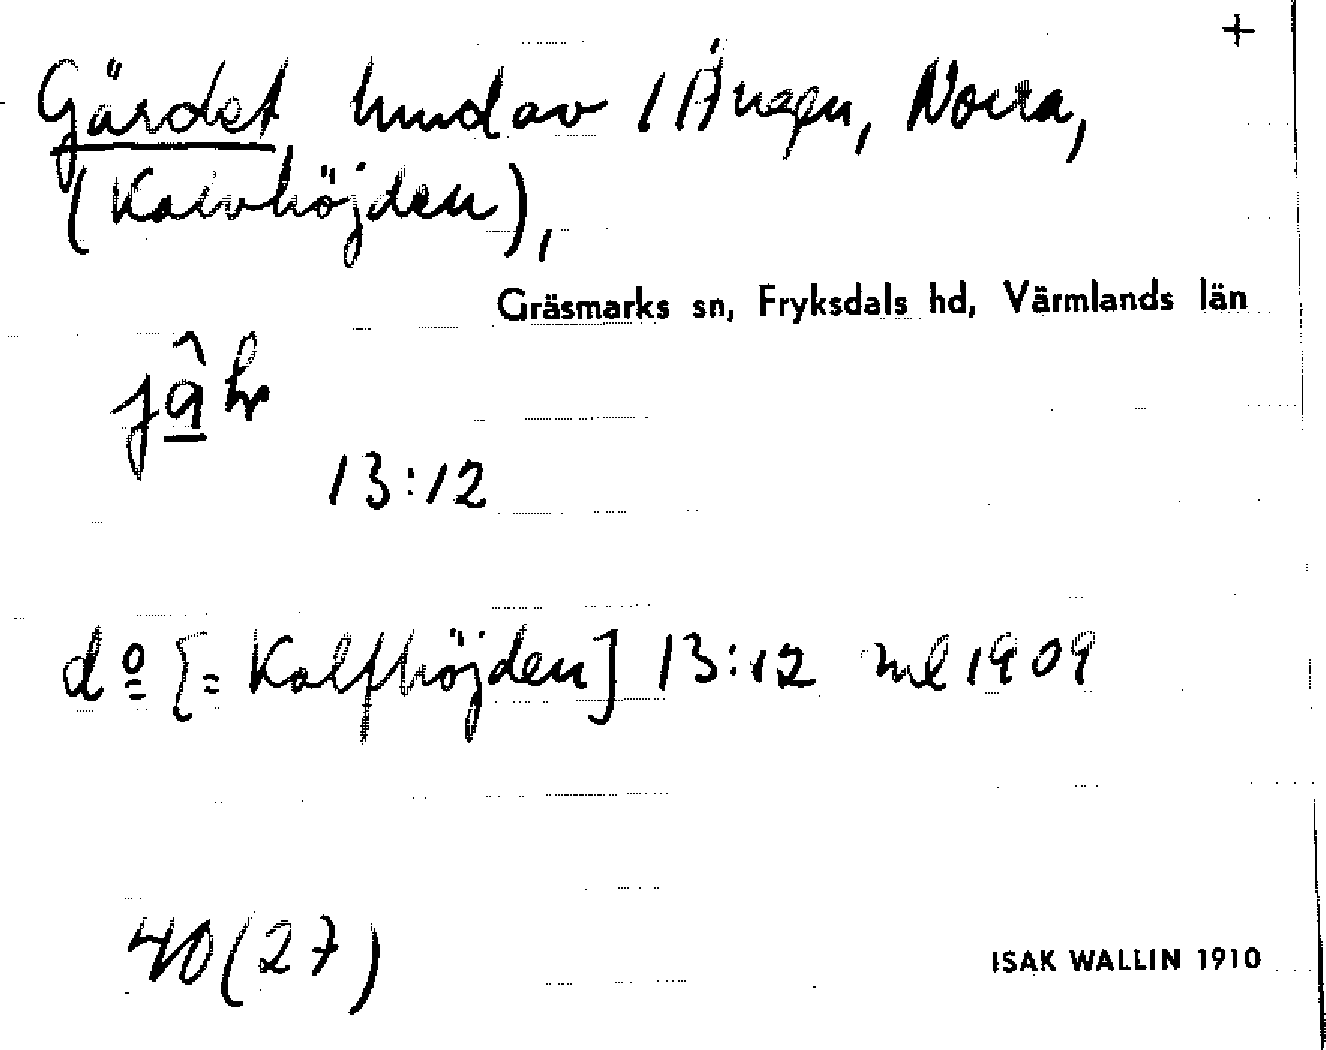 +
Gärdet, hmd av 1 Ängen, Norra,
(Kalvhöjden),
Gräsmarks sn, Fryksdals hd, Värmlands län
13:12
do [= Kalfhöjden] 13:12 ml 1909
40(27)
ISAK WALLIN 1910